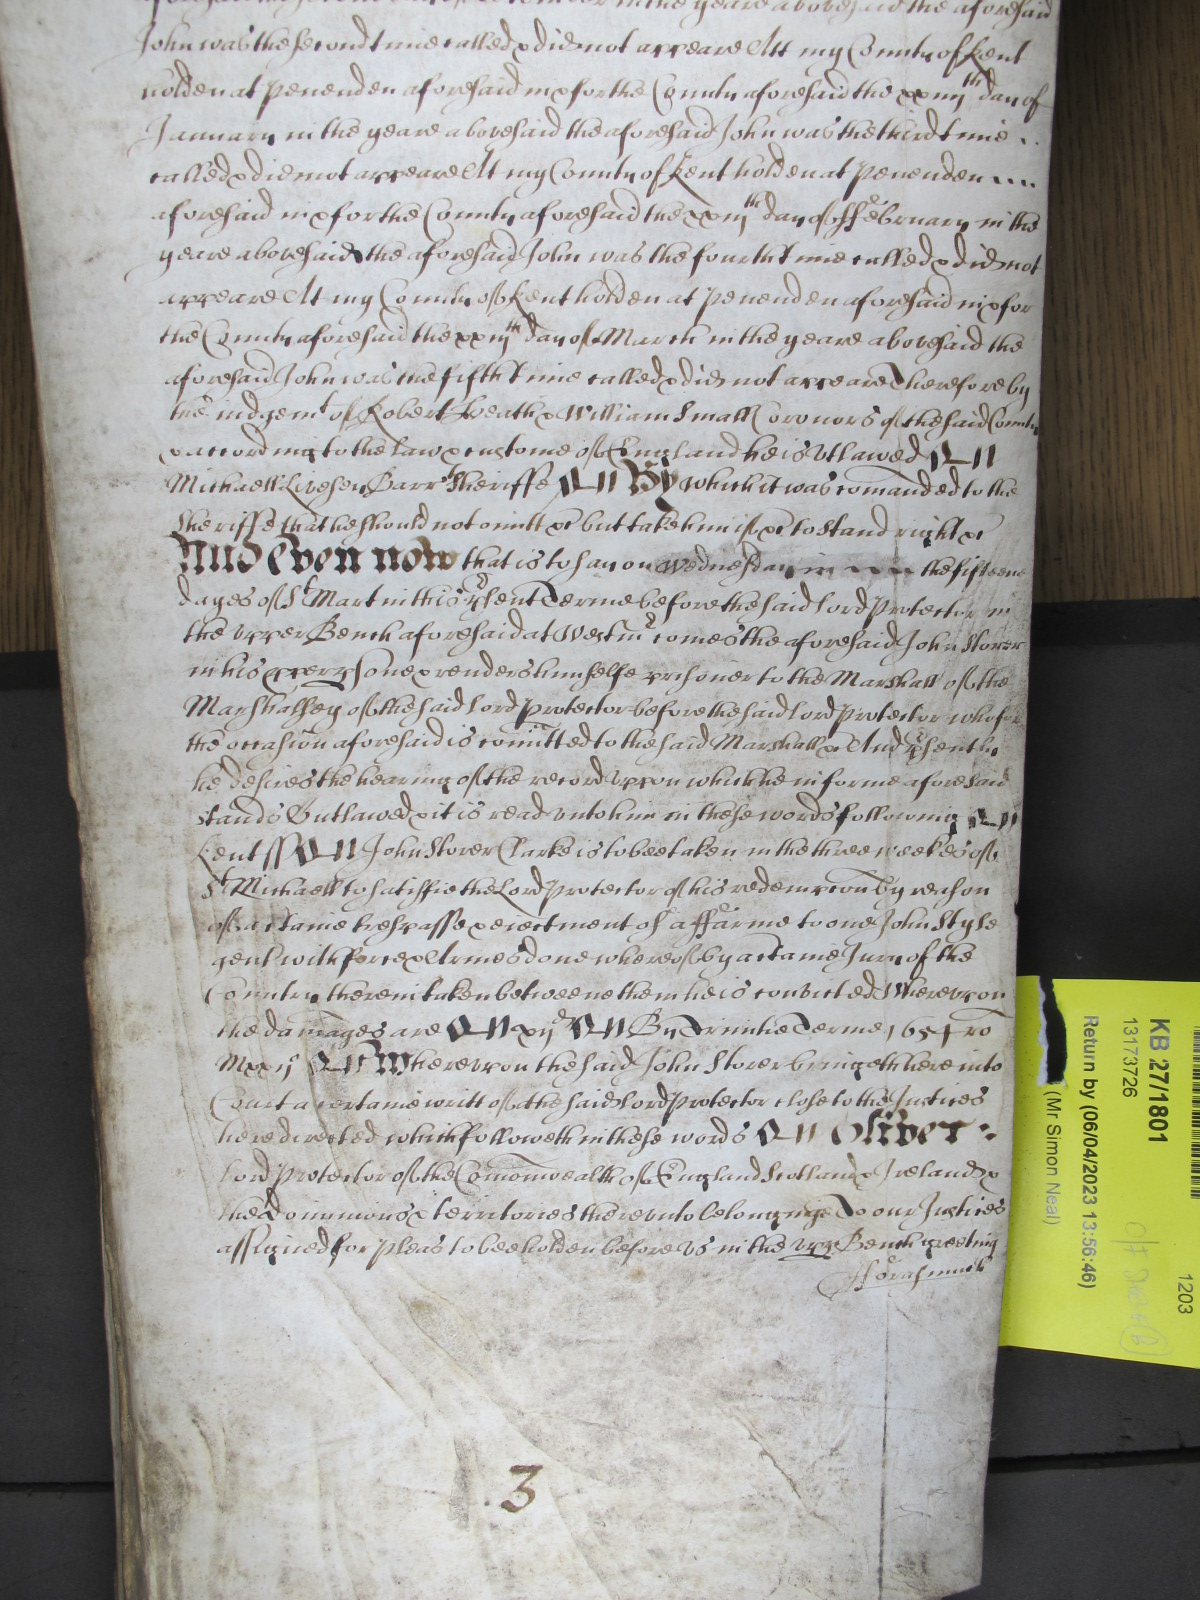 in the yeare abovesaid the aforesaid
John was the second time called & did not appeare Att my County of Kent
holden at Penenden aforesaid in & for the County aforesaid the xxiiijth day of
January in the yeare abovesaid the aforesaid John was the third time
called & did not appeare At my County of Kent holden at Penenden
aforesaid in & for the County aforesaid the day of ffebruary in the
yeare abovesaid the aforesaid John was the fourth time called & did not
appeare At my County of Kent holden at Penenden aforesaid in & for
the County aforesaid the day of March in the yeare abovesaid the
aforesaid John was the fifth time called & did not appeare Therefore by
the iudgemt of Robert Heath & William Small Coronors of the said County
& according to the law & custome of England he is Utlawed
Michaell Livesey Barrt Sheriffe By which it was comanded to the
Sheriffe that he should not omitt &c but take him if &c to stand right &c
And even now that is to say on Wednesday the fifteene
dayes of St Martin this psent Terme before the said Lord Protector in
the Upper Bench aforesaid at Westmr comes the aforesaid John Storer
in his pper psone & renders himselfe prisoner to the Marshall of the
Marshalsey of the said Lord Protector before the said Lord Protector who for
the occasion aforesaid is comitted to the said Marshall &c And psently
he desires the hearing of the record uppon which he in forme aforesaid
stands Outlawed & it is read unto him in these words following
Kent ss John Storer Clarke is to bee taken in the three weekes of
St Michaell to satisfie the Lord Protector of his redempcon by reason
of a ctaine trespasse & eiectment of a ffarme to one John Style
gent with force & Armes done whereof by a ctaine Jury of the
Country therein taken betweene them he is convicted Whereupon
the damages are xijd By Trinitie Terme 1654 ro
Whereupon the said John Storer bringeth here into
Court a certaine writt of the said Lord Protector close to the Justices
here directed which followeth in these words Oliver
Lord Protector of the Comonwealth of England Scotland & Ireland &
the Dominions & territories thereunto belonginge To our Justices
assigned for pleas to bee holden before Us in the upp Bench greeting
3
KB 27/1801
13173726
Return by (06/04/2023 13:56:46)
(Mr Simon Neal)
1203